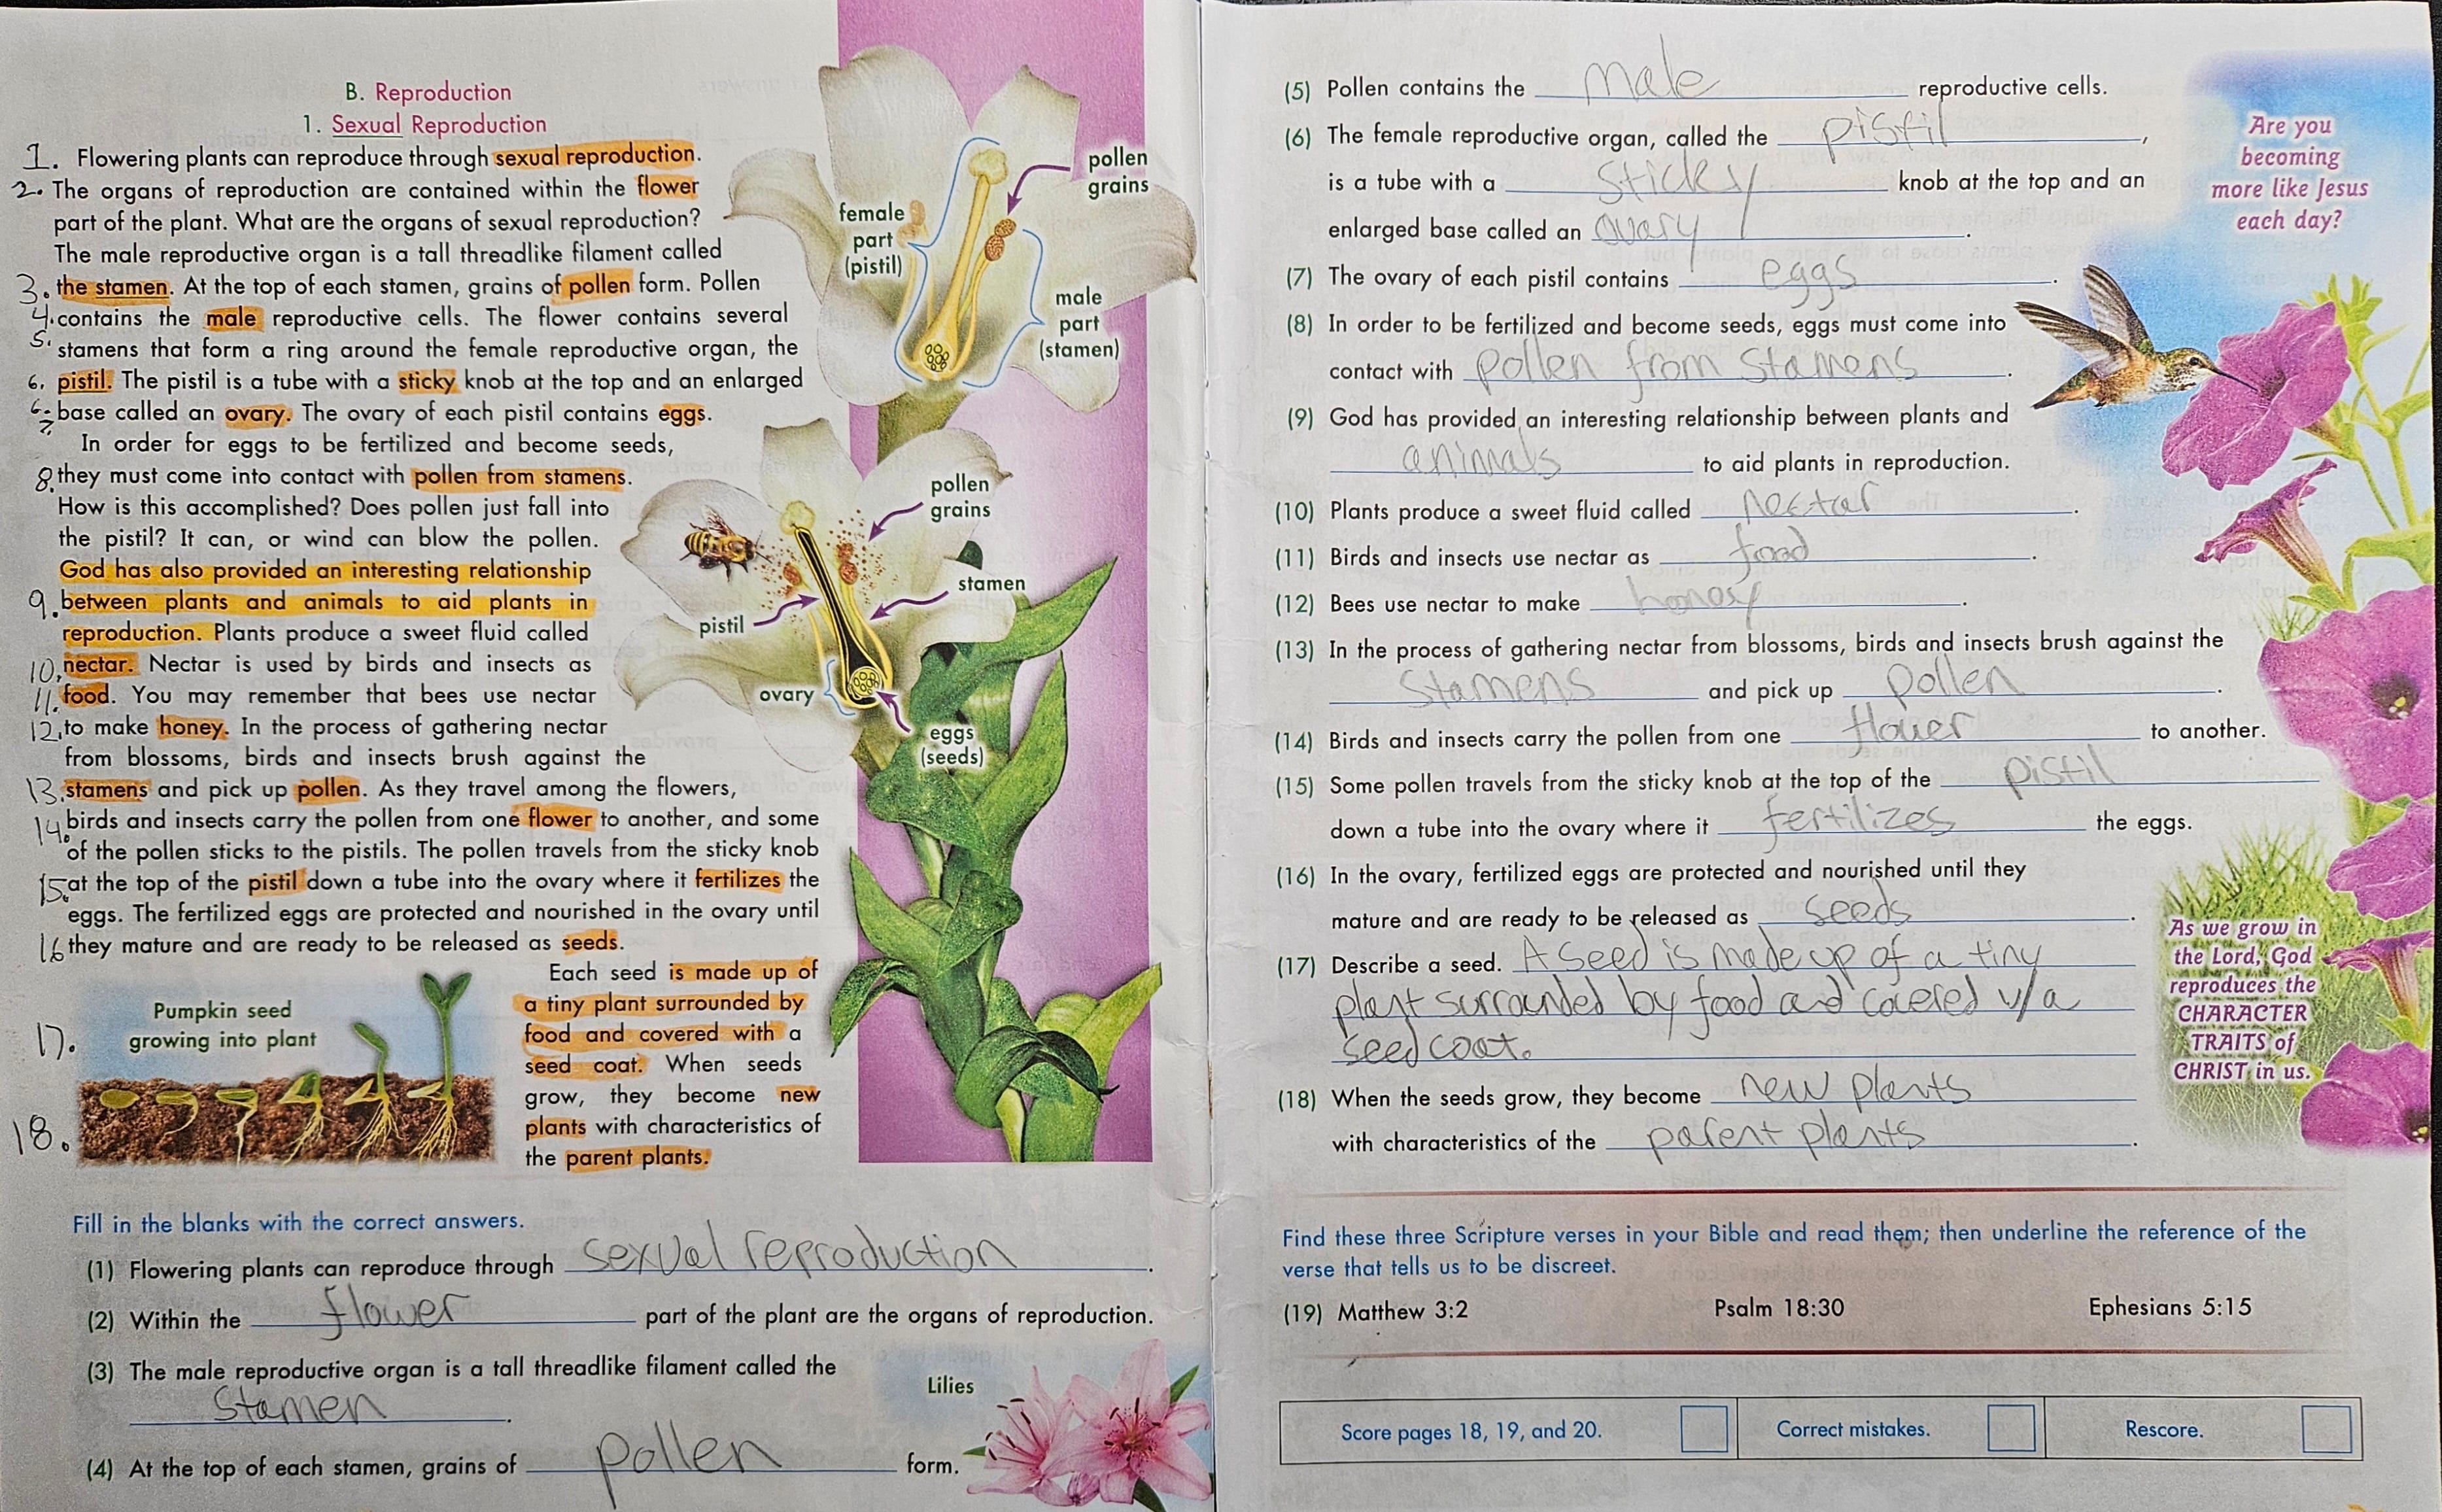 B. Reproduction
1. Sexual Reproduction
1. Flowering plants can reproduce through sexual reproduction.
2. The organs of reproduction are contained within the flower
part of the plant. What are the organs of sexual reproduction?
The male reproductive organ is a tall threadlike filament called
3. the stamen. At the top of each stamen, grains of pollen form. Pollen
4. contains the male reproductive cells. The flower contains several
5. stamens that form a ring around the female reproductive organ, the
6. pistil. The pistil is a tube with a sticky knob at the top and an enlarged
6. base called an ovary. The ovary of each pistil contains eggs.
7. In order for eggs to be fertilized and become seeds,
8. they must come into contact with pollen from stamens.
How is this accomplished? Does pollen just fall into
the pistil? It can, or wind can blow the pollen.
God has also provided an interesting relationship
9. between plants and animals to aid plants in
reproduction. Plants produce a sweet fluid called
10. nectar. Nectar is used by birds and insects as
11. food. You may remember that bees use nectar
12. to make honey. In the process of gathering nectar
from blossoms, birds and insects brush against the
13. stamens and pick up pollen. As they travel among the flowers,
14. birds and insects carry the pollen from one flower to another, and some
of the pollen sticks to the pistils. The pollen travels from the sticky knob
15. at the top of the pistil down a tube into the ovary where it fertilizes the
eggs. The fertilized eggs are protected and nourished in the ovary until
16 they mature and are ready to be released as seeds.
Each seed is made up of
a tiny plant surrounded by
17. food and covered with a
seed coat. When seeds
grow, they become new
18. plants with characteristics of
the parent plants.
Pumpkin seed
growing into plant
female
part
(pistil)
pollen
grains
male
part
(stamen)
pollen
grains
stamen
pistil
ovary
eggs
(seeds)
Fill in the blanks with the correct answers.
(1) Flowering plants can reproduce through sexual reproduction.
(2) Within the flower part of the plant are the organs of reproduction.
(3) The male reproductive organ is a tall threadlike filament called the
stamen.
(4) At the top of each stamen, grains of pollen form.
Lilies
(5) Pollen contains the male reproductive cells.
(6) The female reproductive organ, called the pistil,
is a tube with a sticky knob at the top and an
enlarged base called an ovary.
(7) The ovary of each pistil contains eggs.
(8) In order to be fertilized and become seeds, eggs must come into
contact with pollen from stamens.
(9) God has provided an interesting relationship between plants and
animals to aid plants in reproduction.
(10) Plants produce a sweet fluid called nectar.
(11) Birds and insects use nectar as food.
(12) Bees use nectar to make honey.
(13) In the process of gathering nectar from blossoms, birds and insects brush against the
stamens and pick up pollen.
(14) Birds and insects carry the pollen from one flower to another.
(15) Some pollen travels from the sticky knob at the top of the pistil
down a tube into the ovary where it fertilizes the eggs.
(16) In the ovary, fertilized eggs are protected and nourished until they
mature and are ready to be released as seeds.
(17) Describe a seed. A seed is made up of a tiny
plant surrounded by food and covered w/a
seed coat.
(18) When the seeds grow, they become new plants
with characteristics of the parent plants.
Are you
becoming
more like Jesus
each day?
As we grow in
the Lord, God
reproduces the
CHARACTER
TRAITS of
CHRIST in us.
Find these three Scripture verses in your Bible and read them; then underline the reference of the
verse that tells us to be discreet.
(19) Matthew 3:2 Psalm 18:30 Ephesians 5:15
Score pages 18, 19, and 20. Correct mistakes. Rescore.